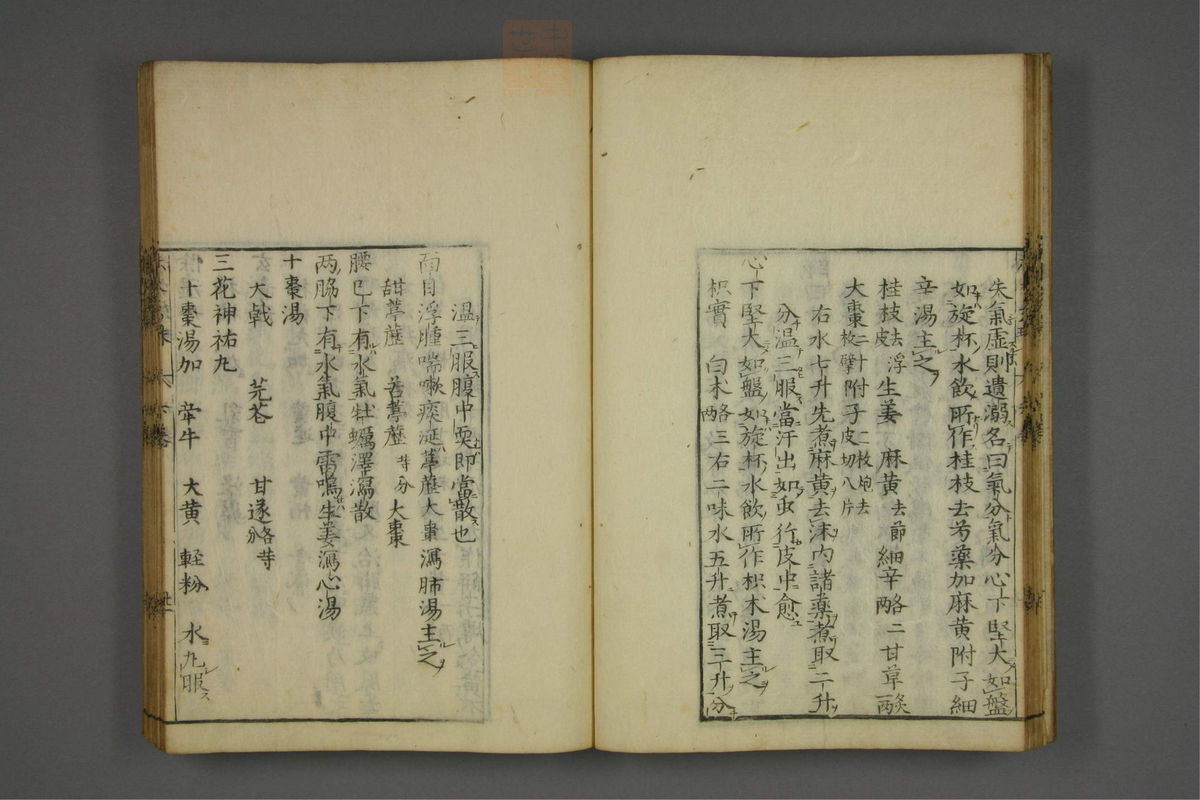 失氣虛則遺溺名曰氣分氣分心下堅大如盤
如旋杯水飲所作桂枝去芍藥加麻黄附子細
辛湯主之
桂枝去皮浮 生姜 麻黄去節細辛 二甘草炙
大棗二十枚擘附子二枚炮去皮切八片
右水七升先煮麻黄去沫内諸薬煮取二升
分温三服當汗出如虫行皮中愈
心下堅大如盤如旋杯水飲所作枳朮湯主之
枳實 白朮 三右二味水五升煮取三升分
温三服腹中耎即當散也
面目浮腫喘嗽痰涎葶藶大棗瀉肺湯主之
甜葶藶 苦葶藶等分 大棗
腰已下有水氣牡蠣澤瀉散
两脇下有水氣腹中雷鳴生姜瀉心湯
十棗湯
大戟 芫花 甘遂各等分
三花神祐丸
十棗湯加 牵牛 大黄 輕粉 水丸服